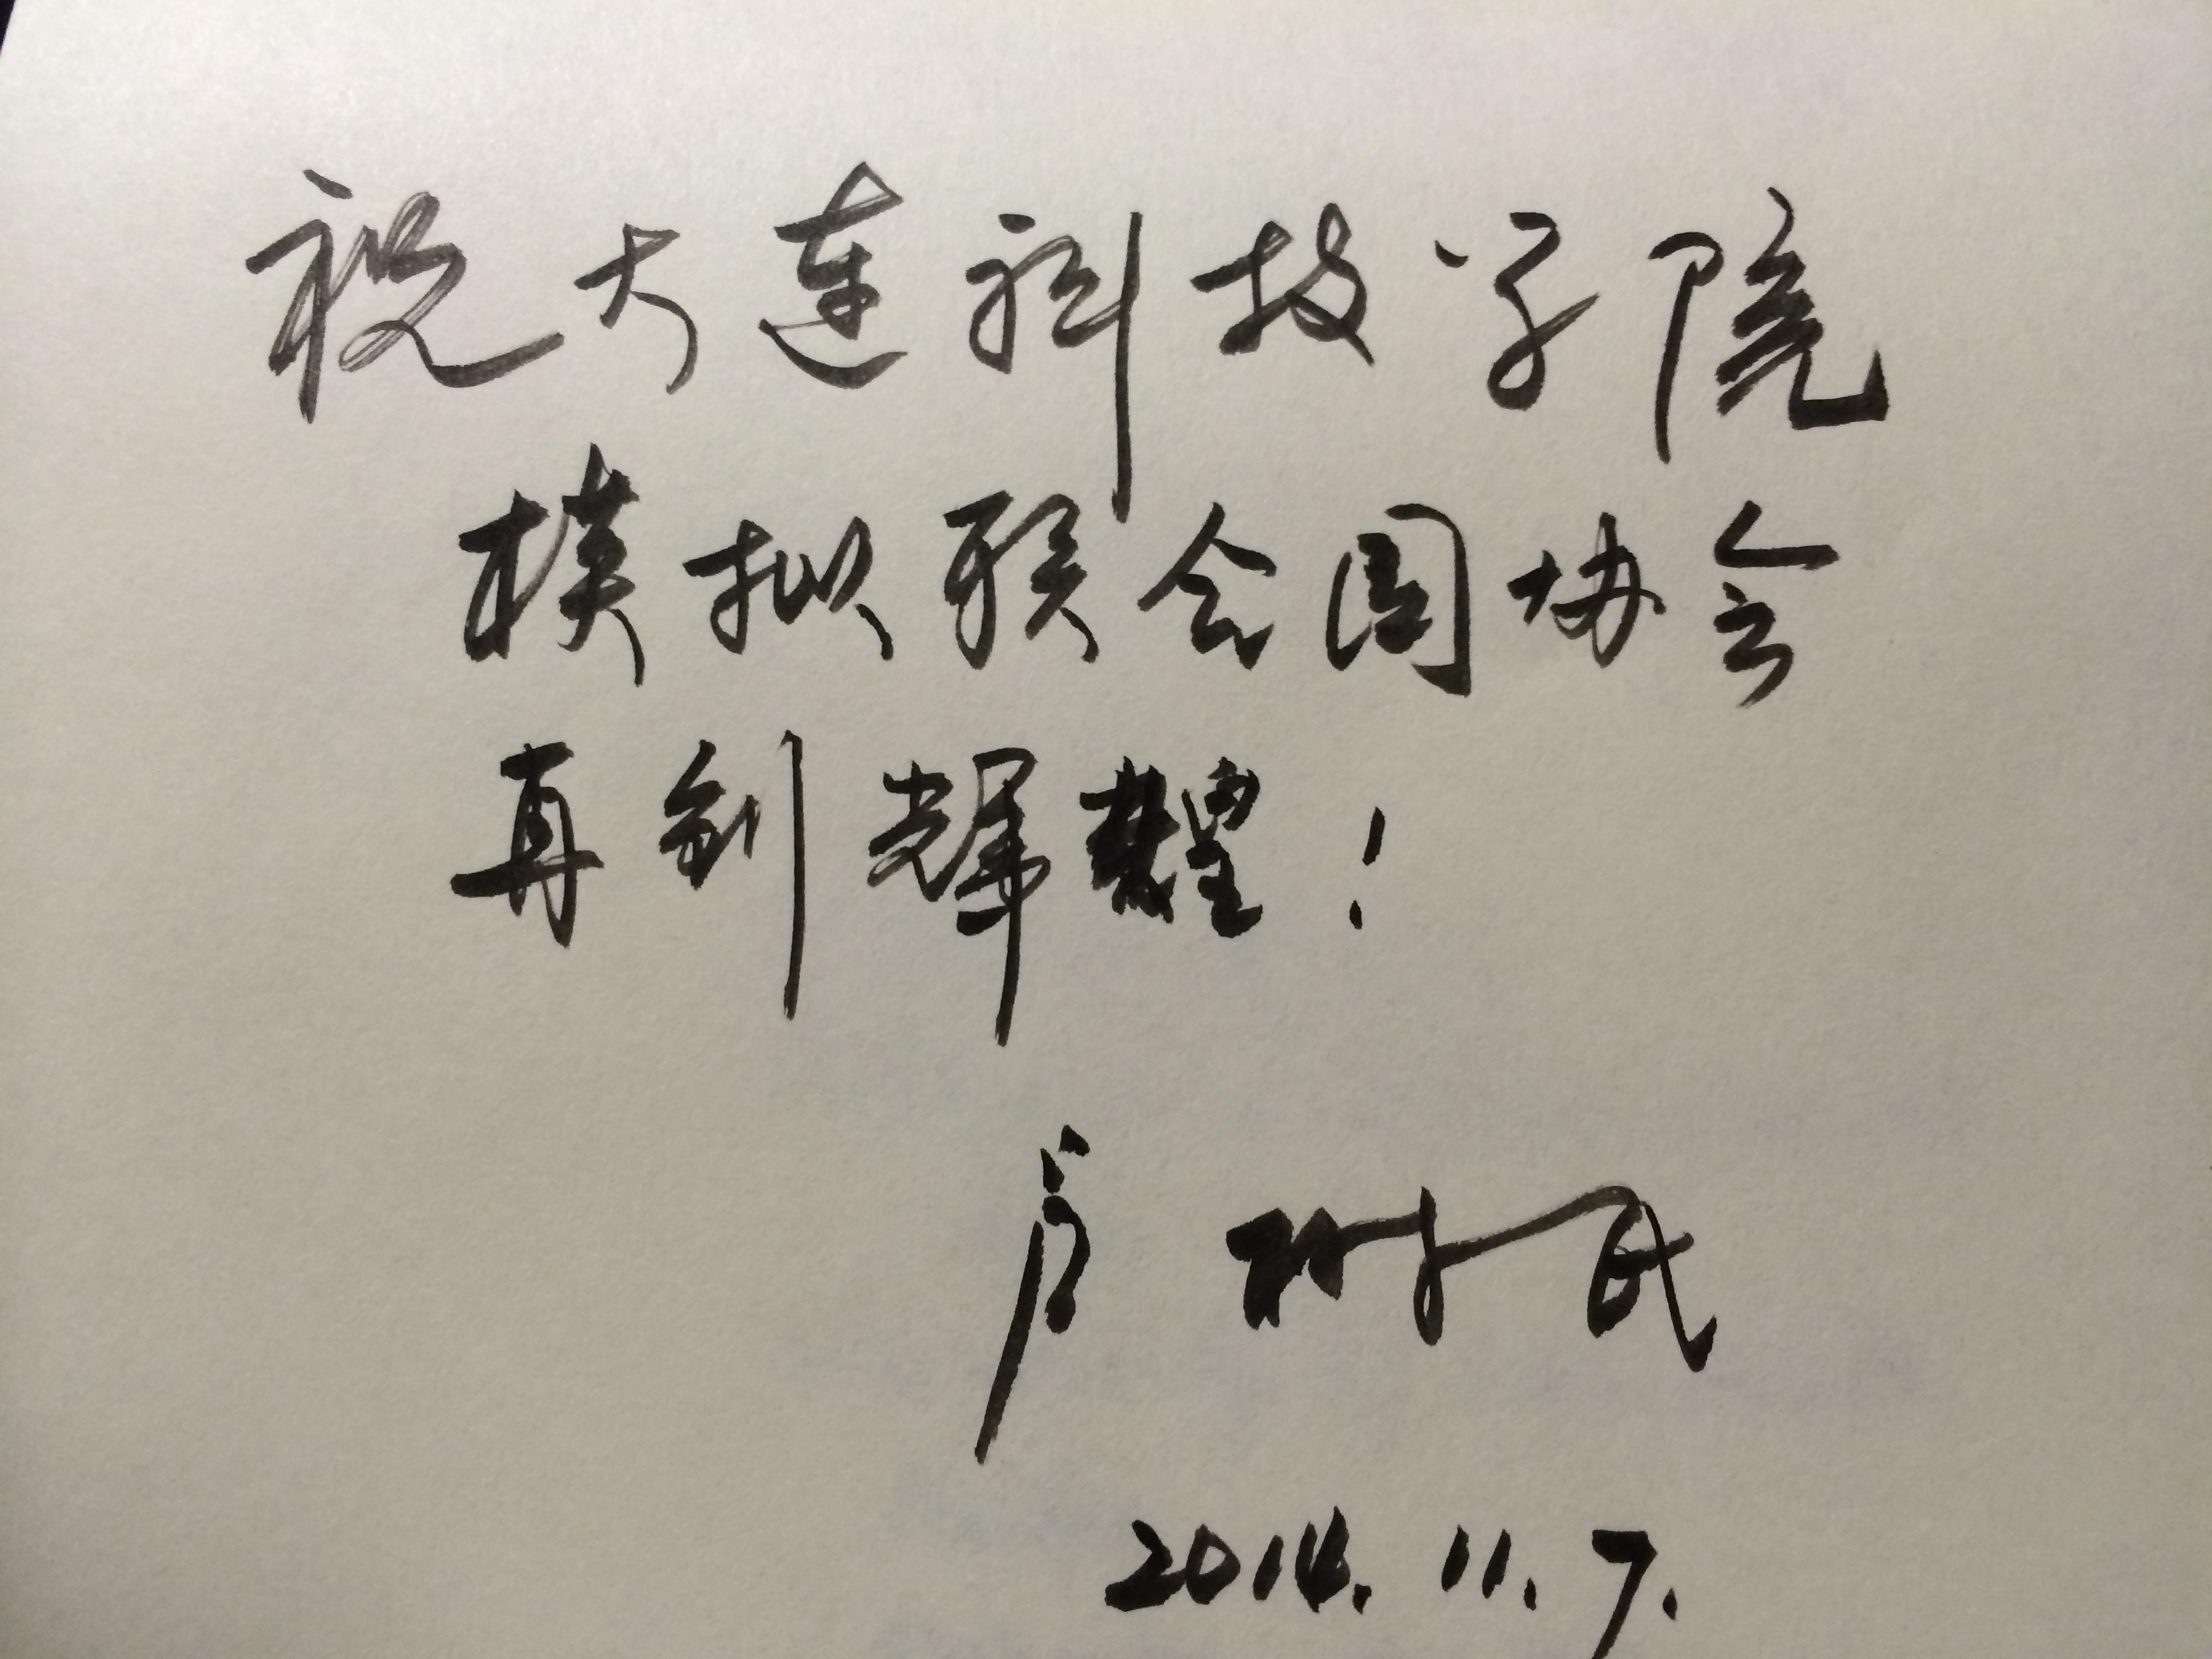 祝大连科技学院
模拟联合国协会
再创辉煌！
卢树民
2014.11.7.